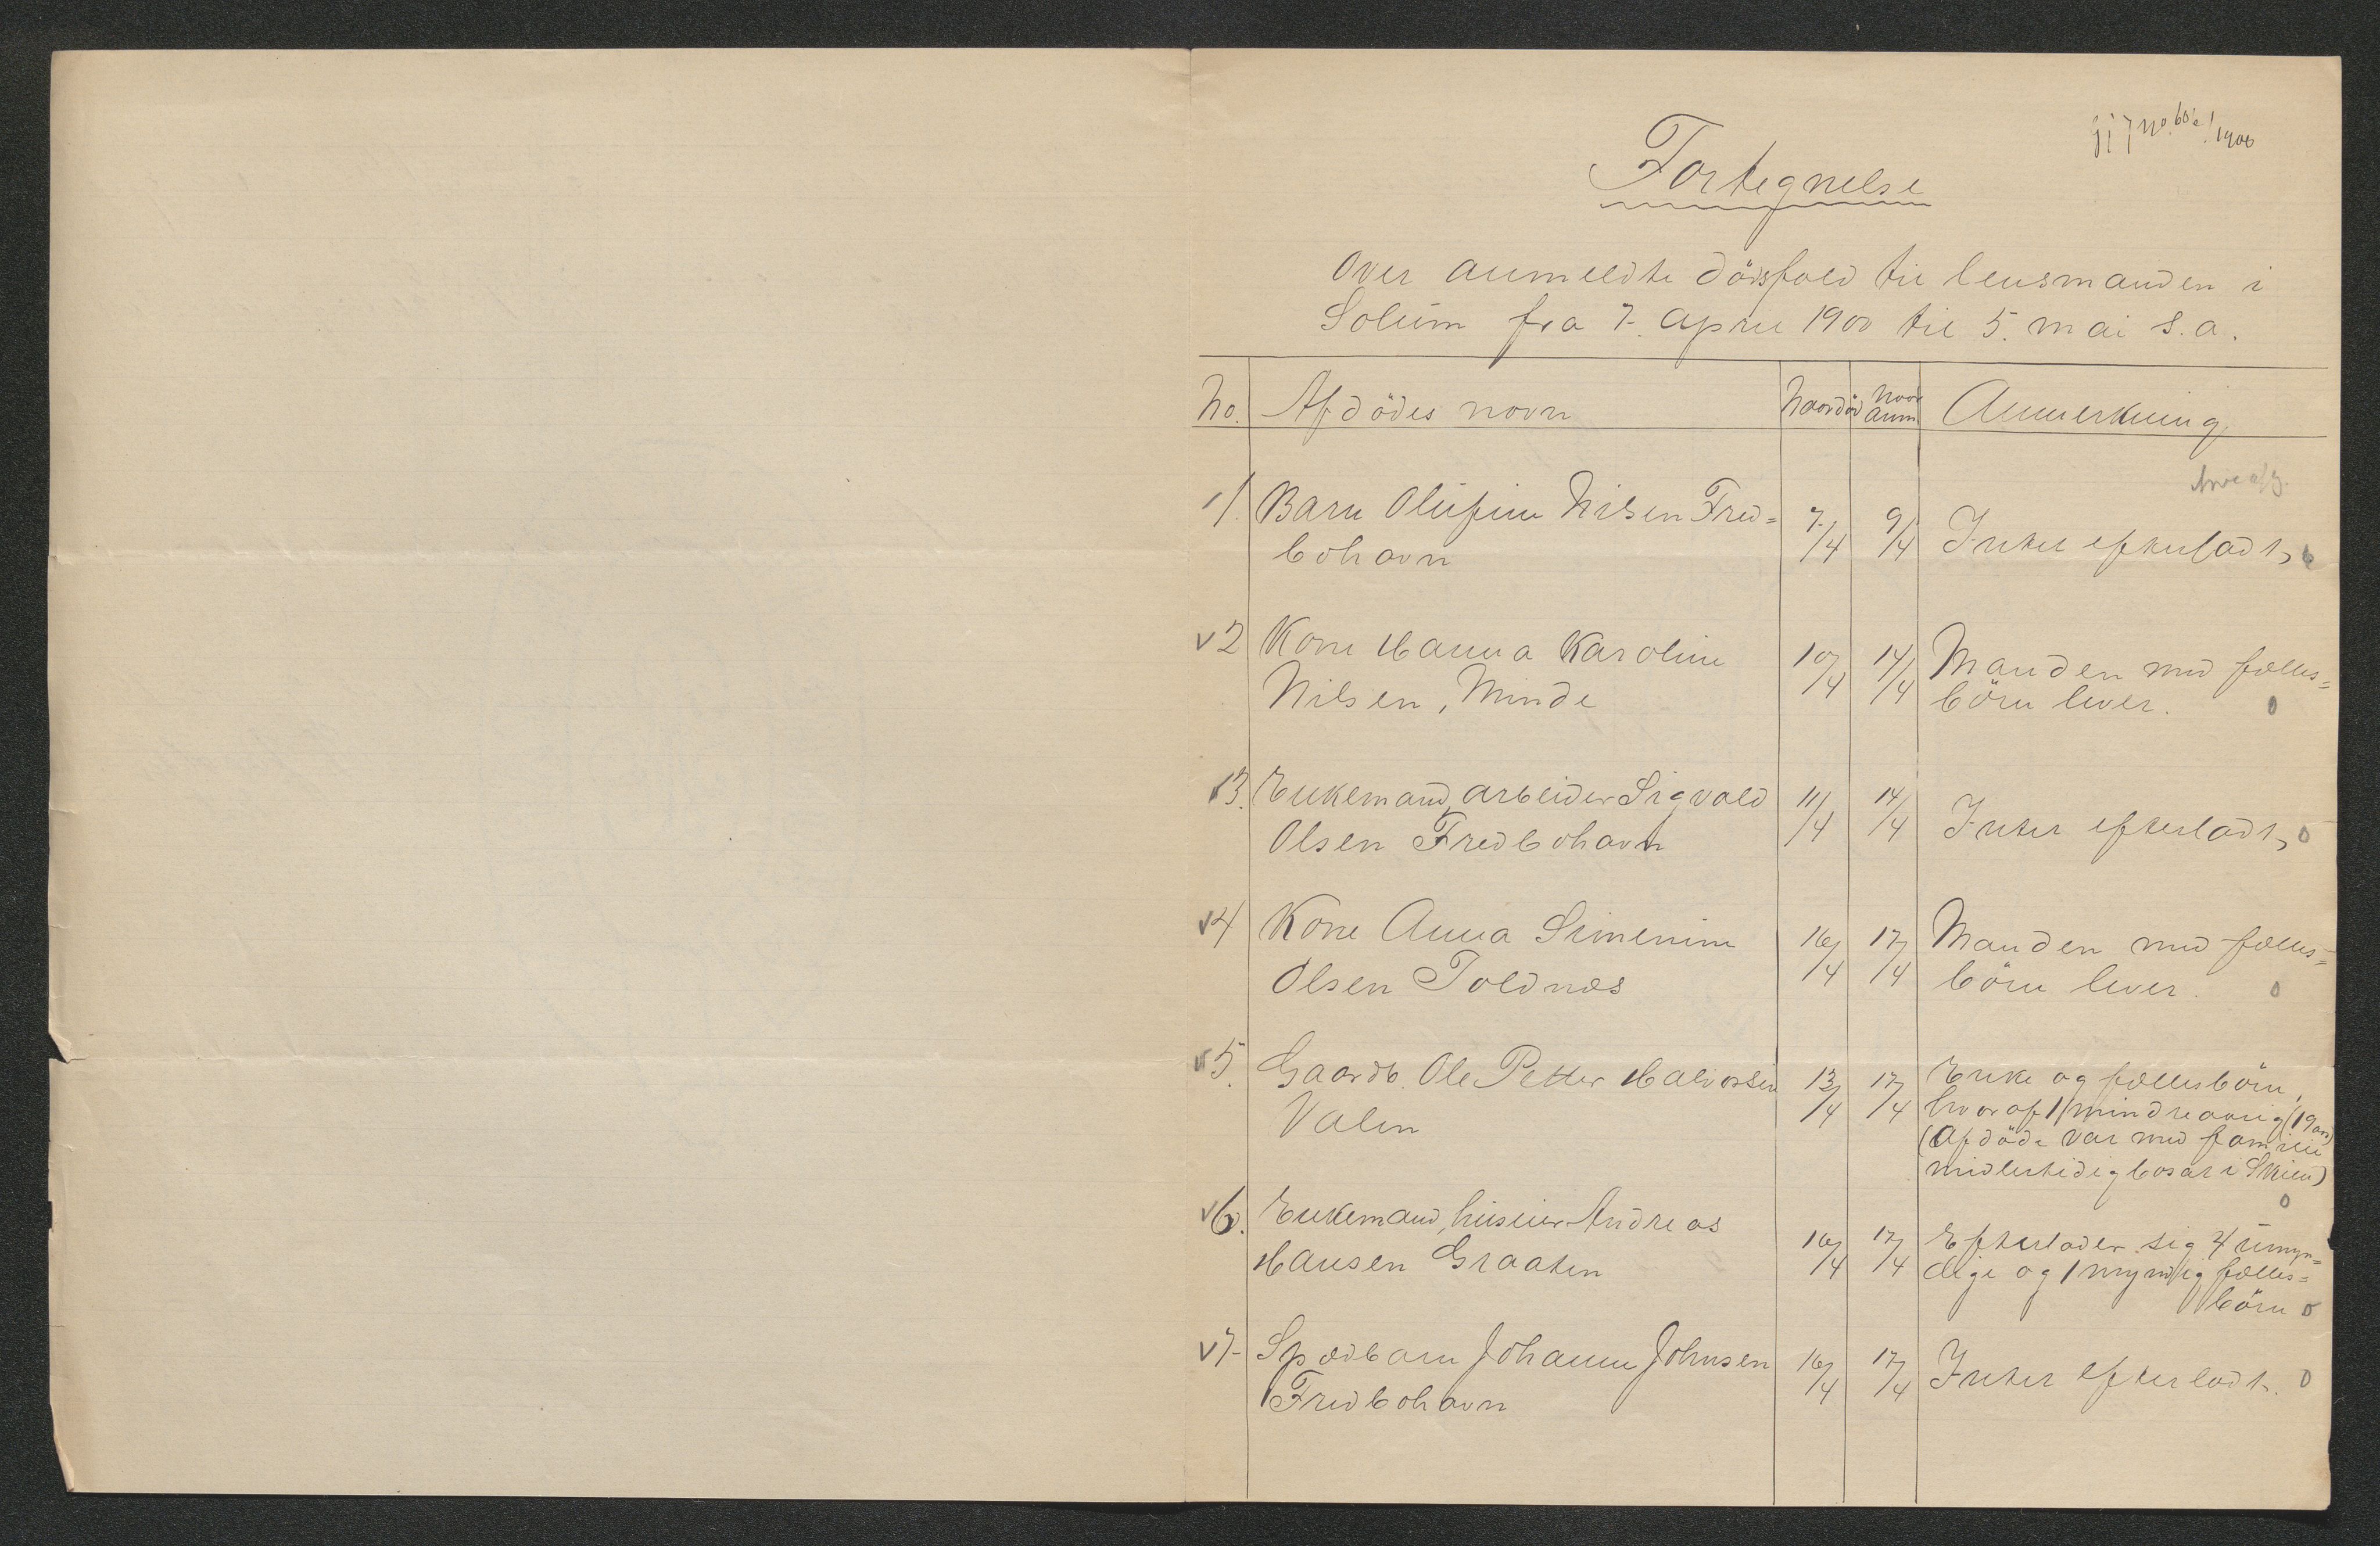 Fortegnelse
Over anmeldte dödsfald til lensmanden i
Solum fra 7. april 1900 til 5. mai s.a.
No. Afdödes navn Naar död Naar anm. Anmerkning
1/. Barn Olufine Nilsen Fred= 7/4 9/4 Intet efterladt,
bohavn
2 Kone Hanna Karoline 10/4 14/4 Manden med fælles=
Nilsen, Minde börn lever. 0
13. Enkemand, arbeider Sigvald 11/4 14/4 Intet efterladt, 0
Olsen Fredbohavn
4 Kone Anna Simenine 16/4 17/4 Manden med fælles=
Olsen Toldnæs börn lever. 0
5. Gaardb. Ole Petter Halvorsen 13/4 17/4 Enke og fællesbörn,
Valen hvoraf 1 mindreaarig (19 aar)
(Afdöde var med familie
midlertidig bosat i Skien)
0
6. Enkemand, huseier Andreas 16/4 17/4 Efterlader sig 4 umyn=
Hansen Graaten dige og 1 myndig fælles=
börn 0
7. Spædbarn Johanne Johnsen 16/4 17/4 Intet efterladt. 0
Fredbohavn